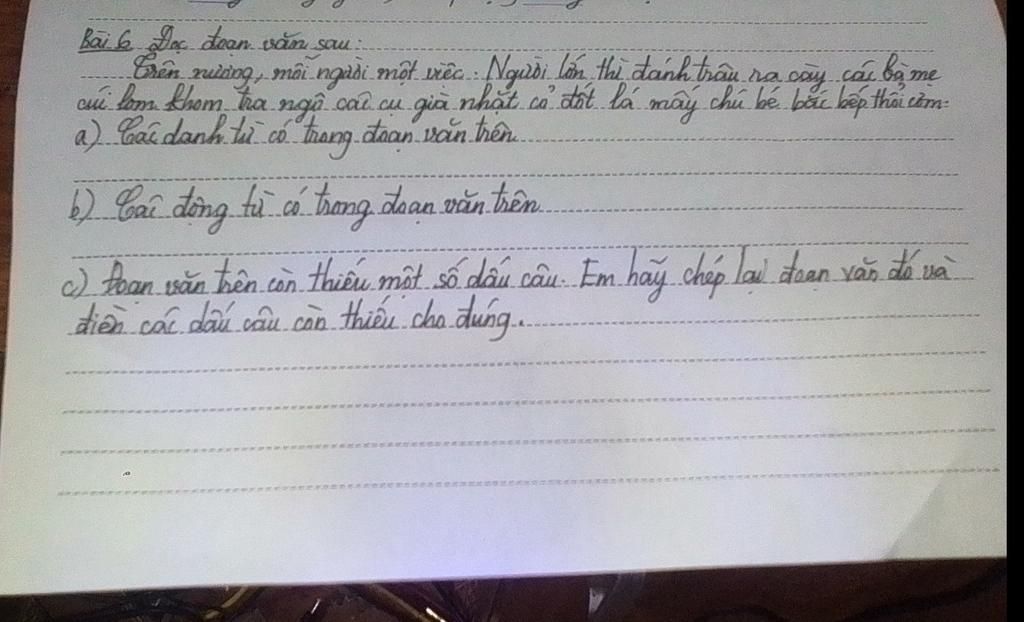 Bài 6 Đọc đoạn văn sau:
Trên nương, mỗi người một việc. Người lớn thì đánh trâu ra cày các bà mẹ
cúi lom khom tra ngô các cụ già nhặt cỏ đốt lá mấy chú bé bắc bếp thổi cơm.
a) Các danh từ có trong đoạn văn trên
b) Các động từ có trong đoạn văn trên
c) Đoạn văn trên còn thiếu một số dấu câu. Em hãy chép lại đoạn văn đó và
điền các dấu câu còn thiếu cho đúng.